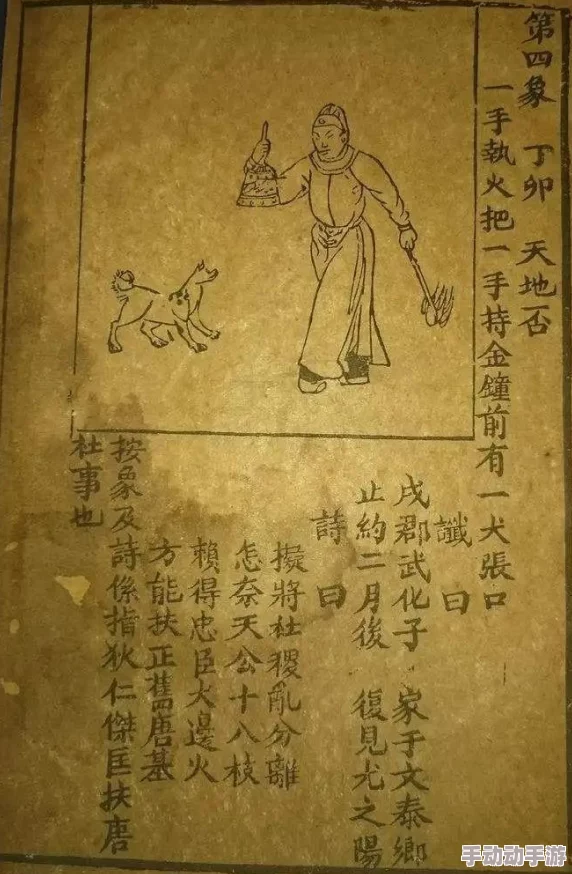 第四象 丁卯 天地否
一手執火把一手持金鐘前有一犬張口
讖曰
戌郡武化子 家于文泰鄉
止約二月後 復見尤之陽
詩曰
擬將杜稷亂分離
怎奈天公十八枝
賴得忠臣犬邊火
方能扶正舊唐基
按象及詩係指狄仁傑匡扶唐
社事也
手动动手游